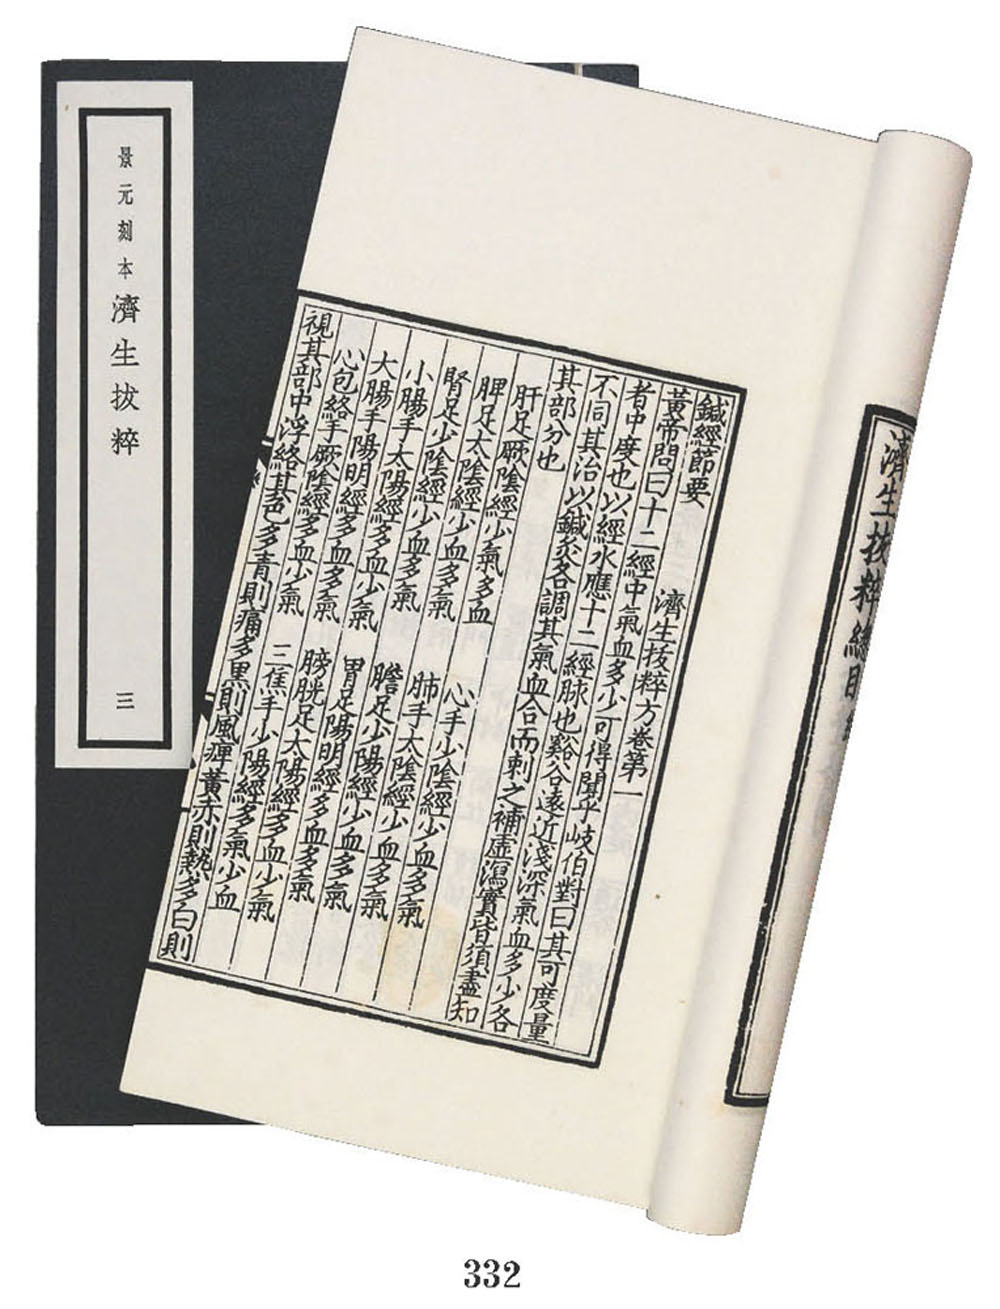 景元刻本濟生拔粹 三
濟生拔粹總目
鍼經節要 濟生拔粹方卷第一
黃帝問曰十二經中氣血多少可得聞乎岐伯對曰其可度量
者中度也以經水應十二經脉也谿谷遠近淺深氣血多少各
不同其治以鍼灸各調其氣血合而刺之補虛瀉實皆須盡知
其部分也
肝足厥陰經少氣多血 心手少陰經少血多氣
脾足太陰經少血多氣 肺手太陰經少血多氣
腎足少陰經少血多氣 膽足少陽經少血多氣
小腸手太陽經多血少氣 胃足陽明經多血多氣
大腸手陽明經多血多氣 膀胱足太陽經多血少氣
心包絡手厥陰經多血少氣 三焦手少陽經多氣少血
視其部中浮絡其色多青則痛多黑則風痺黃赤則熱多白則
332